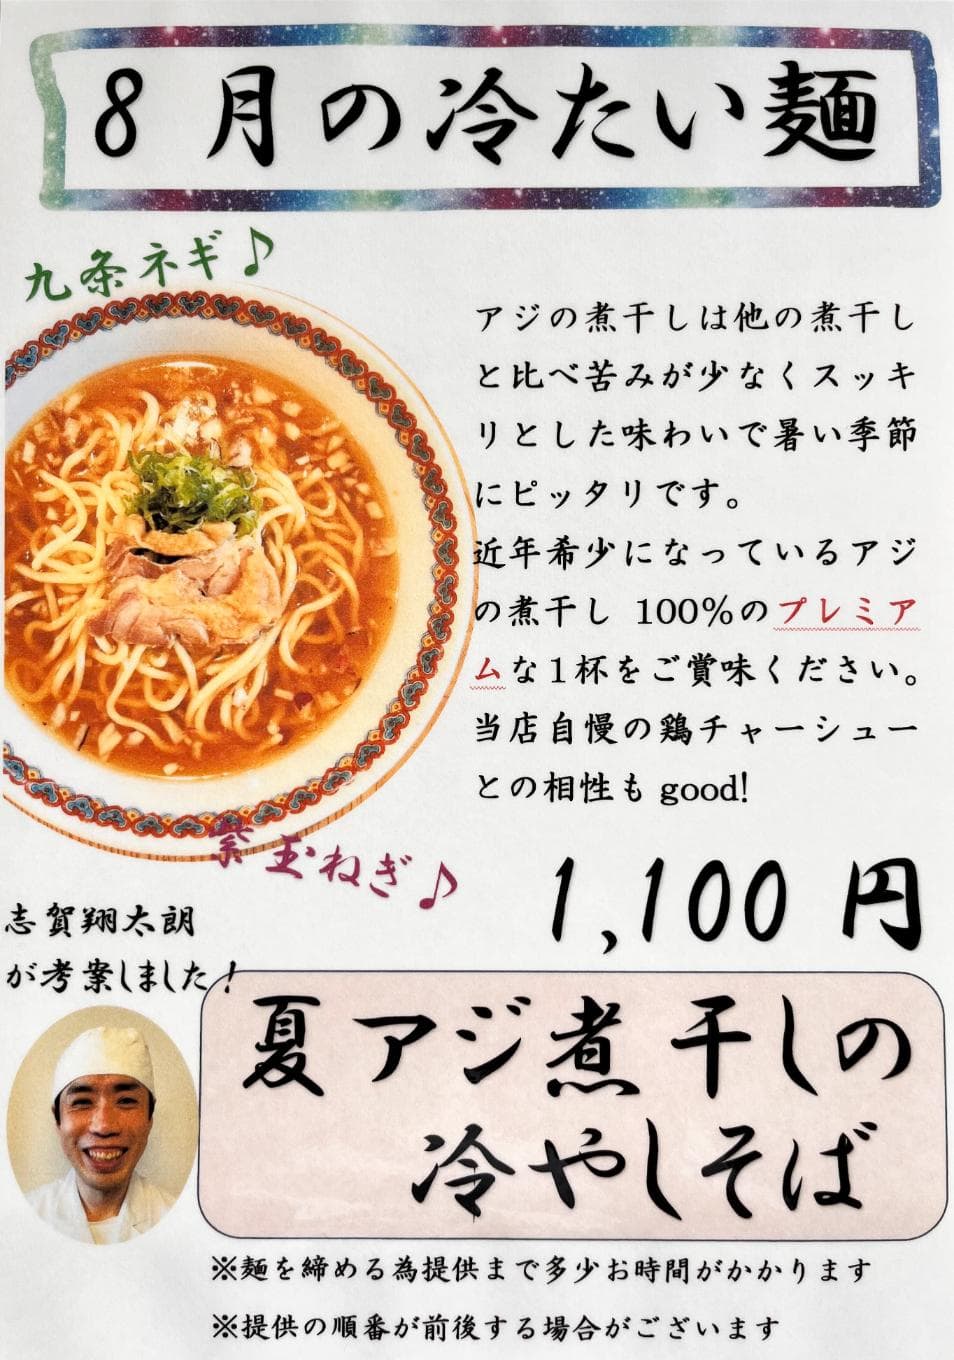 8月の冷たい麺
九条ネギ♪
アジの煮干しは他の煮干し
と比べ苦みが少なくスッキ
リとした味わいで暑い季節
にピッタリです。
近年希少になっているアジ
の煮干し 100%のプレミア
ムな1杯をご賞味ください。
当店自慢の鶏チャーシュー
との相性も good!
紫玉ねぎ♪
1,100 円
志賀翔太朗
が考案しました!
夏アジ煮干しの
冷やしそば
※麺を締める為提供まで多少お時間がかかります
※提供の順番が前後する場合がございます